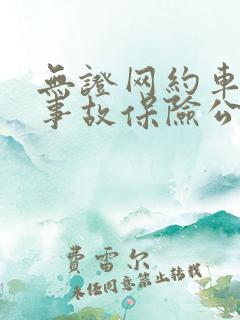 無證网約車
事故保險公
費雷尔
未经同意禁止转载